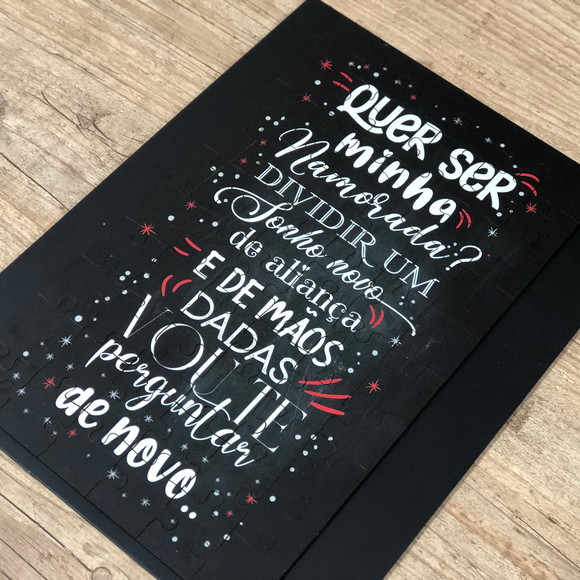 QUER SER
minha
Namorada?
DIVIDIR UM
Sonho novo
de aliança
E DE MÃOS
DADAS
VOU TE
perguntar
de novo..